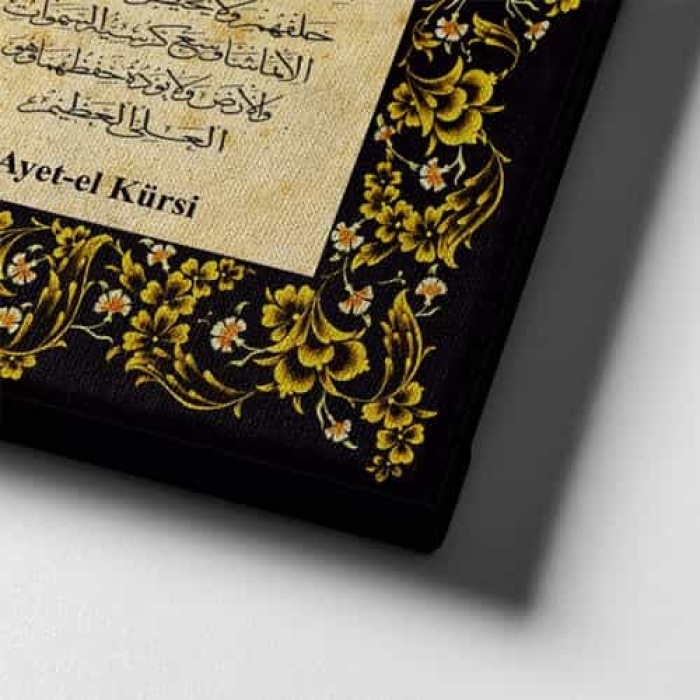 خلفهم ولا
الا بما شاء وسع كرسيه السموات
والارض ولا يوده حفظهما وهو
العلي العظيم
Ayet-el Kürsi